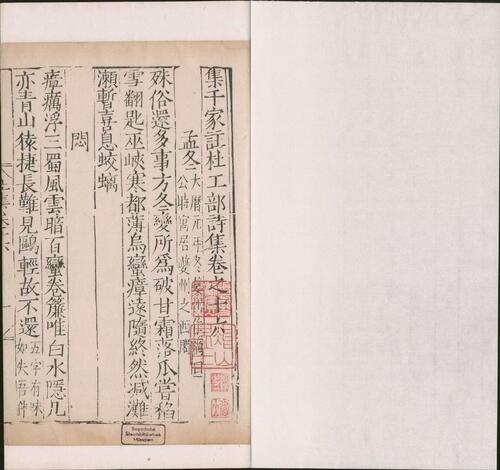 集千家註杜工部詩集卷之十六
孟冬 大曆元年冬
公時寓居夔州之西閣
殊俗還多事方冬變所為破甘霜落爪嘗稻
雪翻匙巫峽寒都薄烏蠻瘴遠隨終然減灘
瀨暫喜息蛟螭
悶
瘴癘浮三蜀風雲暗百蠻卷簾唯白水隱几
亦青山猿捷長難見鷗輕故不還 五字有味
如失吾伴
Bayerische
Staatsbibliothek
München